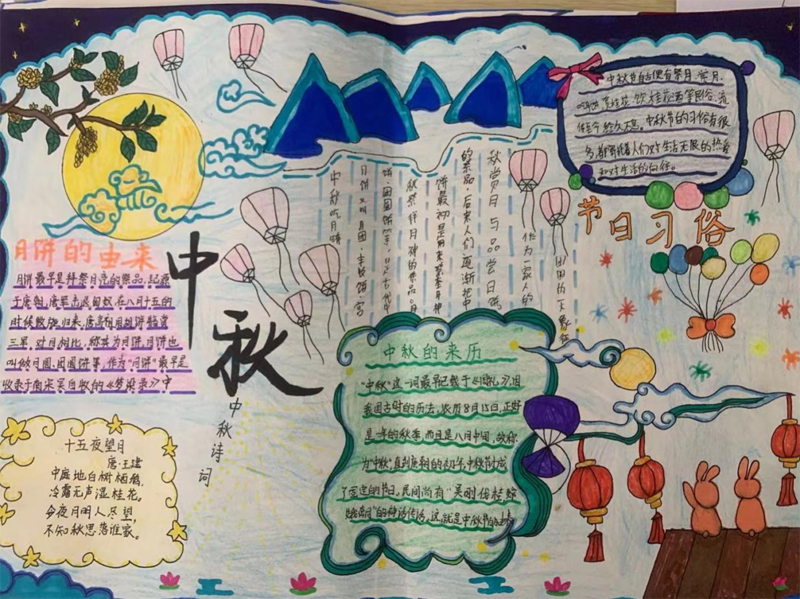 中秋节自古便有祭月、赏月、
吃月饼、赏桂花、饮桂花酒等习俗，流
传至今，经久不息。中秋节的习俗有很
多，都寄托着人们对生活无限的热爱
和对生活的向往。
节日习俗
月饼的由来
月饼最早是拜祭月亮的祭品，起源
于唐朝，
时候
三军，对月相比，
叫做月团、团圆饼等，作为"月饼"最早是
收录于南宋吴自牧的《梦粱录》中
中秋
中秋诗词
十五夜望月
唐·王建
中庭地白树栖鸦，
冷露无声湿桂花。
今夜月明人尽望，
不知秋思落谁家。
秋赏月与品尝月饼
的祭品，后来人们逐渐把中
饼最初是用来祭奉月神
献祭拜月神的供品。月
饼、团圆饼等，是古代中
月饼，又叫月团、丰收饼、宫
中秋吃月饼
作为一家人的
团圆的一大象征
中秋的来历
"中秋"这一词最早记载于《周礼》，因
我国古时的历法，农历8月15日，正好
是一年的秋季，而且是八月中间，故称
为"中秋"直到唐朝的初年，中秋节才成
了固定的节日，民间尚有"吴刚伯桂、嫦
娥奔月"的神话传话，这就是中秋节的由来